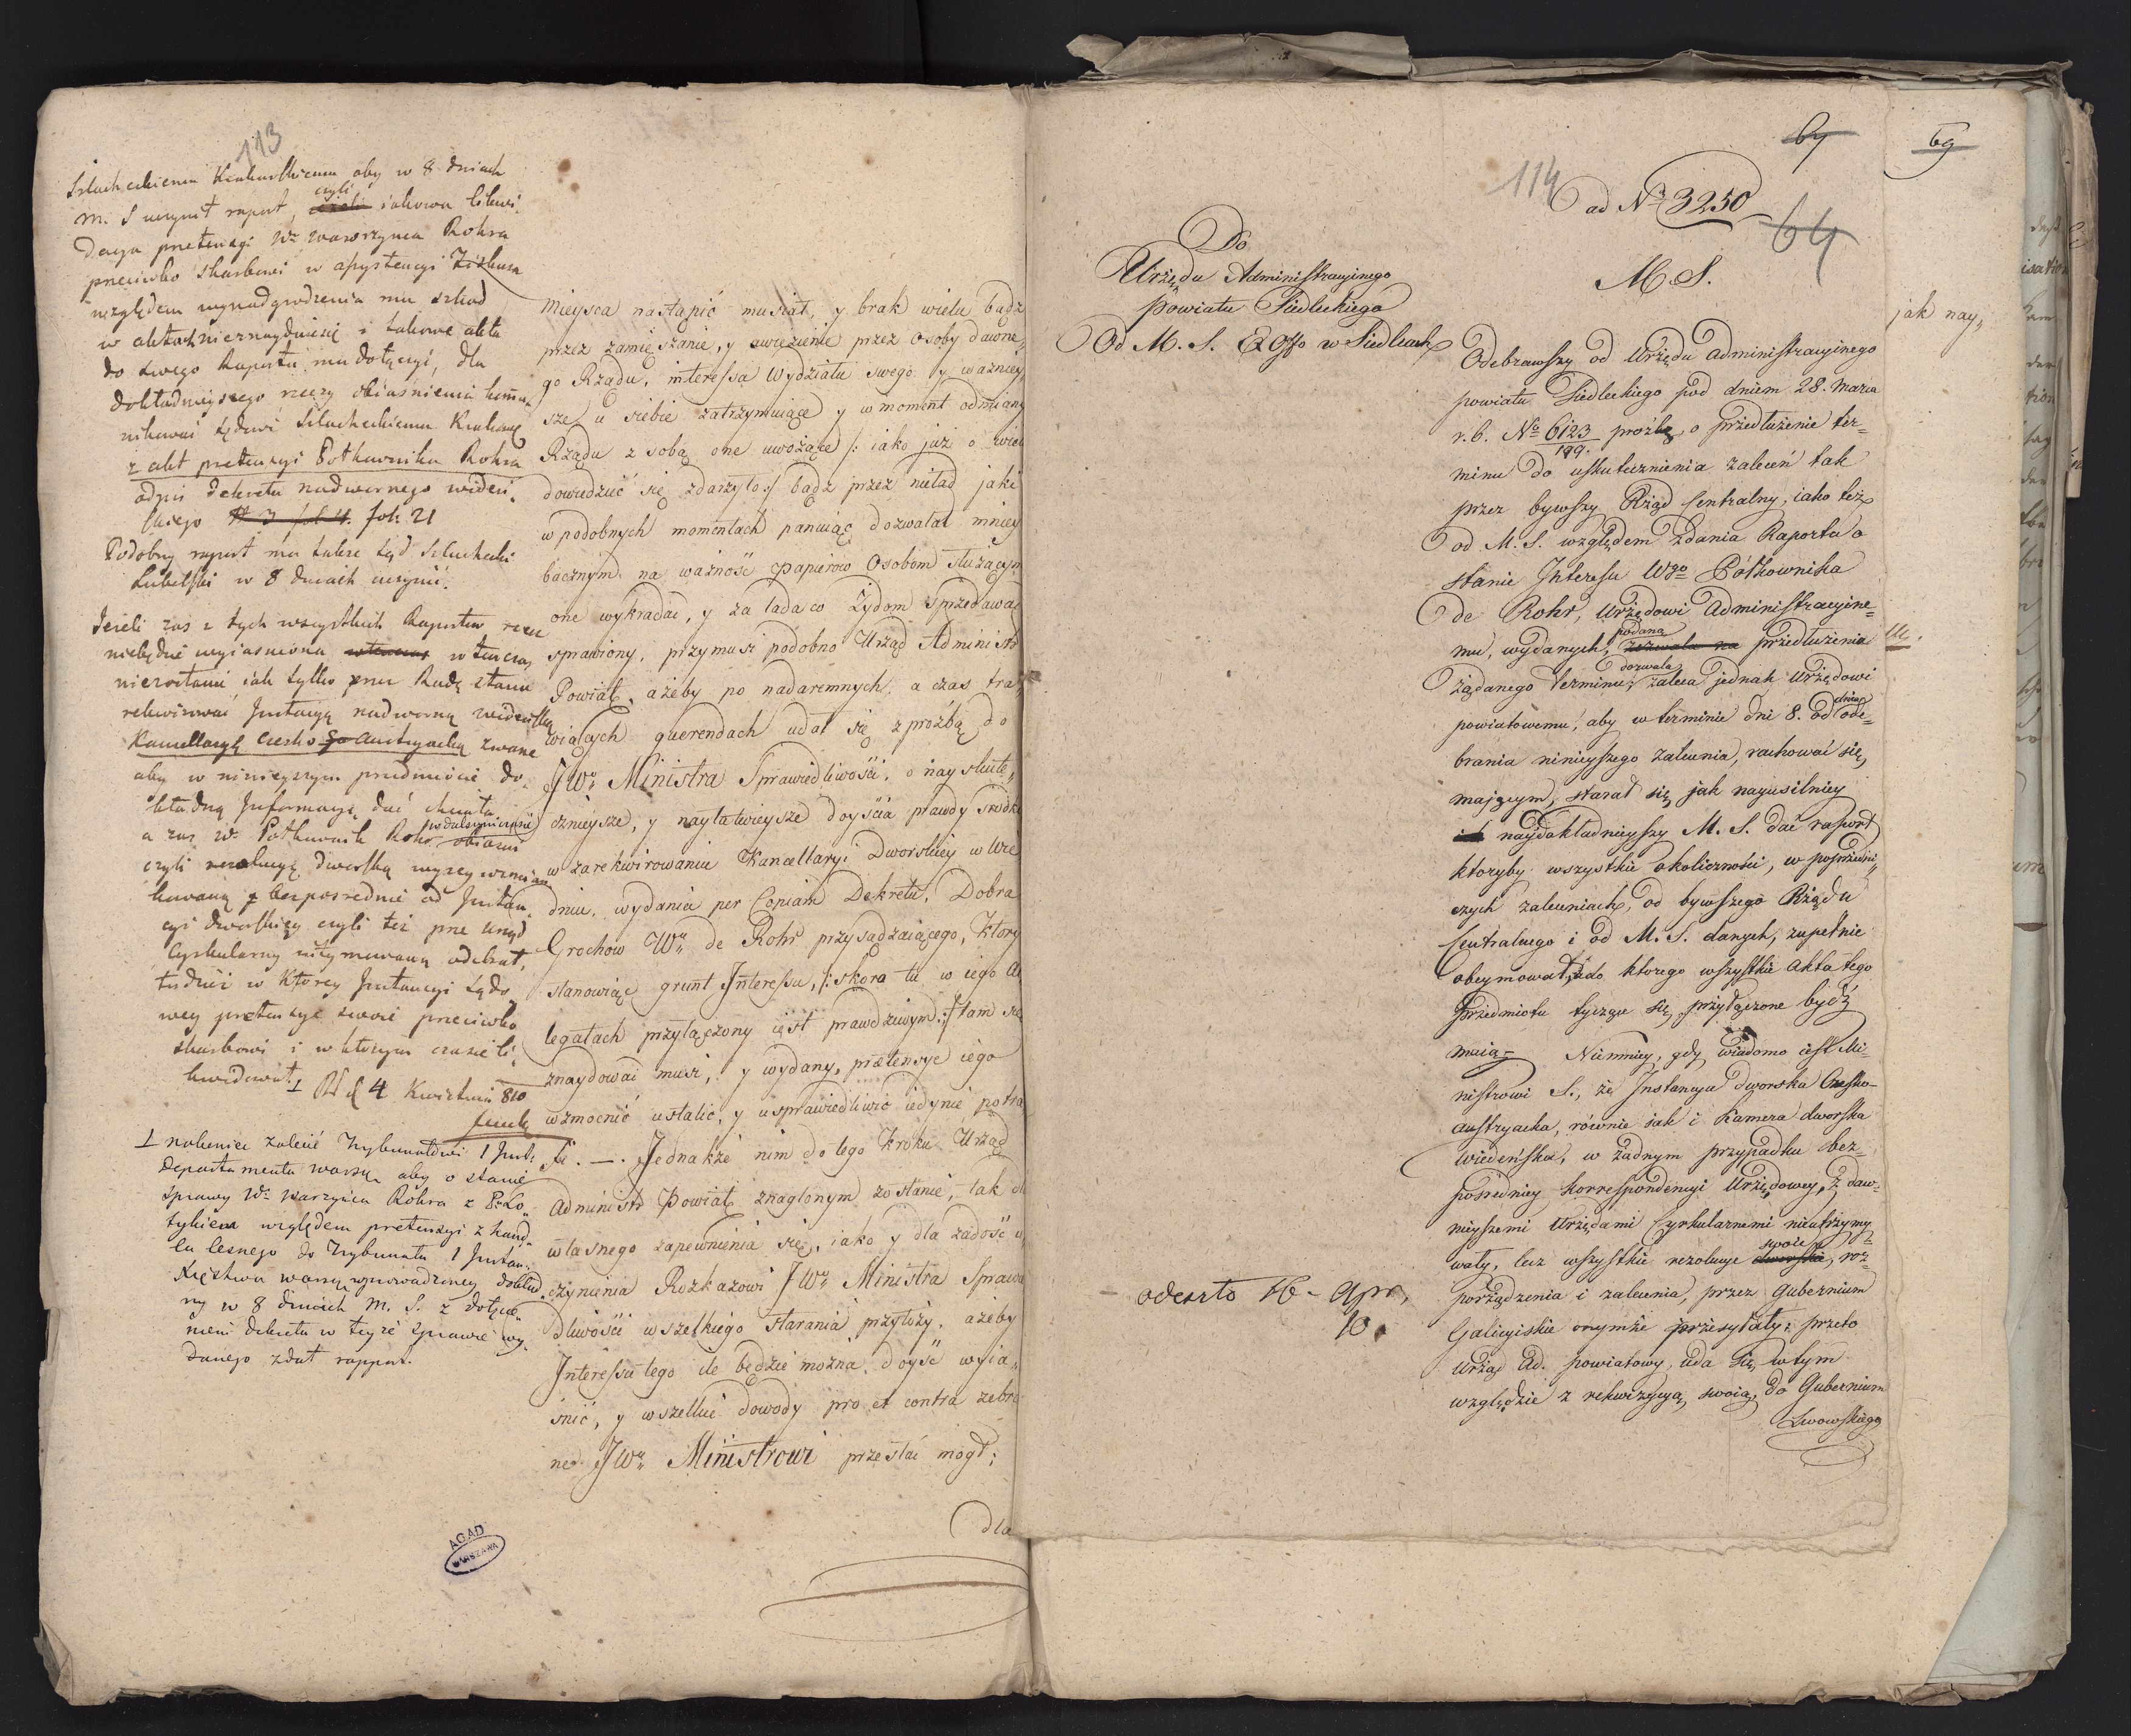 113
Szlacheckiemu Krakowskiemu aby w 8 dniach
M. S uczynił raport, czyli iakowa likwi„
dacya pretensyi Wo Wawrzyńca Rohra
przeciwko skarbowi w assystencyi Fiskusa
względem wynadgrodzenia mu szkod
w aktach nieznayduie się i takowe akta
do swego Raportu mu dołączył, dla
dokładnieyszego rzeczy obiaśnienia
Sądowi Szlacheckiemu
z akt pretensyi Połkownika Rohra
odpis dekretu nadwornego wiedeń„
skiego fol: 21
Podobny raport ma także Sąd Szlachecki
Lubelski w 8 dniach uczynić.
Jeżeli zas z tych wszystkich Raportow rzecz
niebędzie wyiasniona wtenczas
niezostanie iak tylko przez Radę stanu
rekwirować Jnstancyą nadworną wiedeńską
Kancellaryą Czesko Austryacką zwane
aby w ninieyszym przedmiocie do„
kładną Jnformacyą dać chciała
a zas Wo Połkownik Rohr obiasni
czyli rezolucyą dworską wyzey wzmian„
kowaną bezposrednie od Jnstan„
cyi dworskiey czyli też prze urząd
Cyrkularny odebrał,
tudzież w ktorey Jnstancyi Sądo„
wey pretensye swoie przeciwko
skarbowi i w ktorym czasie li„
kwidował
4 Kwietnia 810
⊥ nakoniec zalecić Trybunałowi 1 Jnst:
Departamentu warsz: aby o stanie
sprawy Wo Warzyńca Rohra z
względem pretensyi z hand„
lu lesnego do Trybunału 1 Jnstan:
Xięstwa warsz: wprowadzoney dokład„
ny w 8 dniach M. S. z dołącze„
niem dekretu w teyze sprawie wy„
danego zdał rapport.
mieysca nastąpić musiał, y brak wielu bądź
przez zamięszanie, y uwięzienie przez Osoby dawne„
go Rządu, interessa Wydziału swego y waźniey„
sze u siebie zatrzymuiące y w moment odmiany
Rządu z sobą one uwożące /: iako już o
dowiedzieć się zdarzyło :/ bądz przez nieład jaki
w podobnych momentach panuiąc dozwalał mniey
bacznym na ważność papierow Osobom służącym
one wykradać, y za lada co Zydom sprzedawać
sprawiony, przymusi podobno Urząd Administr
Powiat. ażeby po nadaremnych, a czas tra„
wiących querendach udał się z proźbą do
JWo Ministra Sprawiedliwości, o nayskute„
cznieysze, y nayłatwieysze doyścia prawdy srodki
w zarekwirowaniu Kancellaryi Dworskiey w Wie
dniu, wydania per Copiam Dekretu, Dobra
Grochow Wo de Rohr przysądzaiącego, ktory
stanowiąc grunt Jnteressu, /: skoro tu w iego Al
legatach przyłączony iest prawdziwym :/ tam się
znaydować musi, y wydany, pretensye iego
wzmocnić ustalić, y usprawiedliwić iedynie potra
fi. —. Jednakże nim do tego kroku Urząd
Administr Powiat. znaglonym zostanie, tak
własnego zapewnienia się, iako y dla zadość u
czynienia Rozkazowi JWo Ministra Sprawie
dliwości wszelkiego starania przyłoży, ażeby
Jnteressu tego ile będzie można doyść wyia„
śnić, y wszelkie dowody pro et contra zebra
ne JWo Ministrowi przesłać mogł;
dla
AGAD
WARSZAWA
67
114
ad No 3250
64
Do
Urzędu Administracyinego
powiatu Siedleckiego
Od M. S. Ex Offo w Siedlcach
M. S.
Odebrawszy od Urzędu Administracyinego
powiatu Siedleckiego pod dniem 28. Marca
r. b. No 6123/199. proźbę, o przedłużenie ter=
minu do uskutecznienia zaleceń tak
przez bywszy Rząd Centralny, iako też
od M. S. względem zdania Raportu o
stanie Jnteresu Wgo Półkownika
de Rohr, Urzędowi Administracyine=
mu, wydanych, podana zezwala na przedłużenia
żądanego terminu, dozwala zaleca jednak Urzędowi
powiatowemu, aby w terminie dni 8. od dnia ode=
brania ninieyszego zalecenia, rachować się
mającym, starał się jak nayusilniey
naydokładnieyszy M. S. dać raport
ktoryby wszystkie okoliczności, w poprzedni„
czych zaleceniach, od bywszego Rządu
Centralnego i od M. S. danych, zupełnie
obeymował, a do ktorego wszystkie Akta tego
przedmiotu tyczące się, przyłączone bydź
maią. Niemniey, gdy wiadomo iest Mi=
nistrowi S., że Jnstancya dworska Czesko-
austryacka, równie jak i Kamera dworska
wiedeńska, w żadnym przypadku bez=
posredniey korrespondencyi Urzędowey, z daw=
nieyszemi Urzędami Cyrkularnemi nieutrzymy=
wały, lecz wszystkie rezolucye swoie dworskie, roz=
porządzenia i zalecenia, przez Gubernium
Galicyiskie onymże przesyłały; przeto
Urząd Ad. powiatowy, uda się w tym
względzie z rekwizycyą swoią, do Gubernium
Lwowskiego
odeszło 16 - Apr.
10.
69
jak nay„